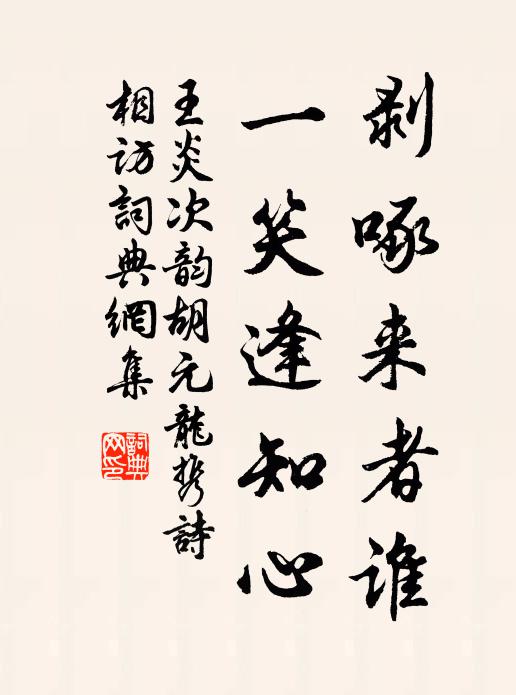 剥啄来者谁
一笑逢知心
王炎次韵胡元龍携詩
相访詞典網集
詞典
网印